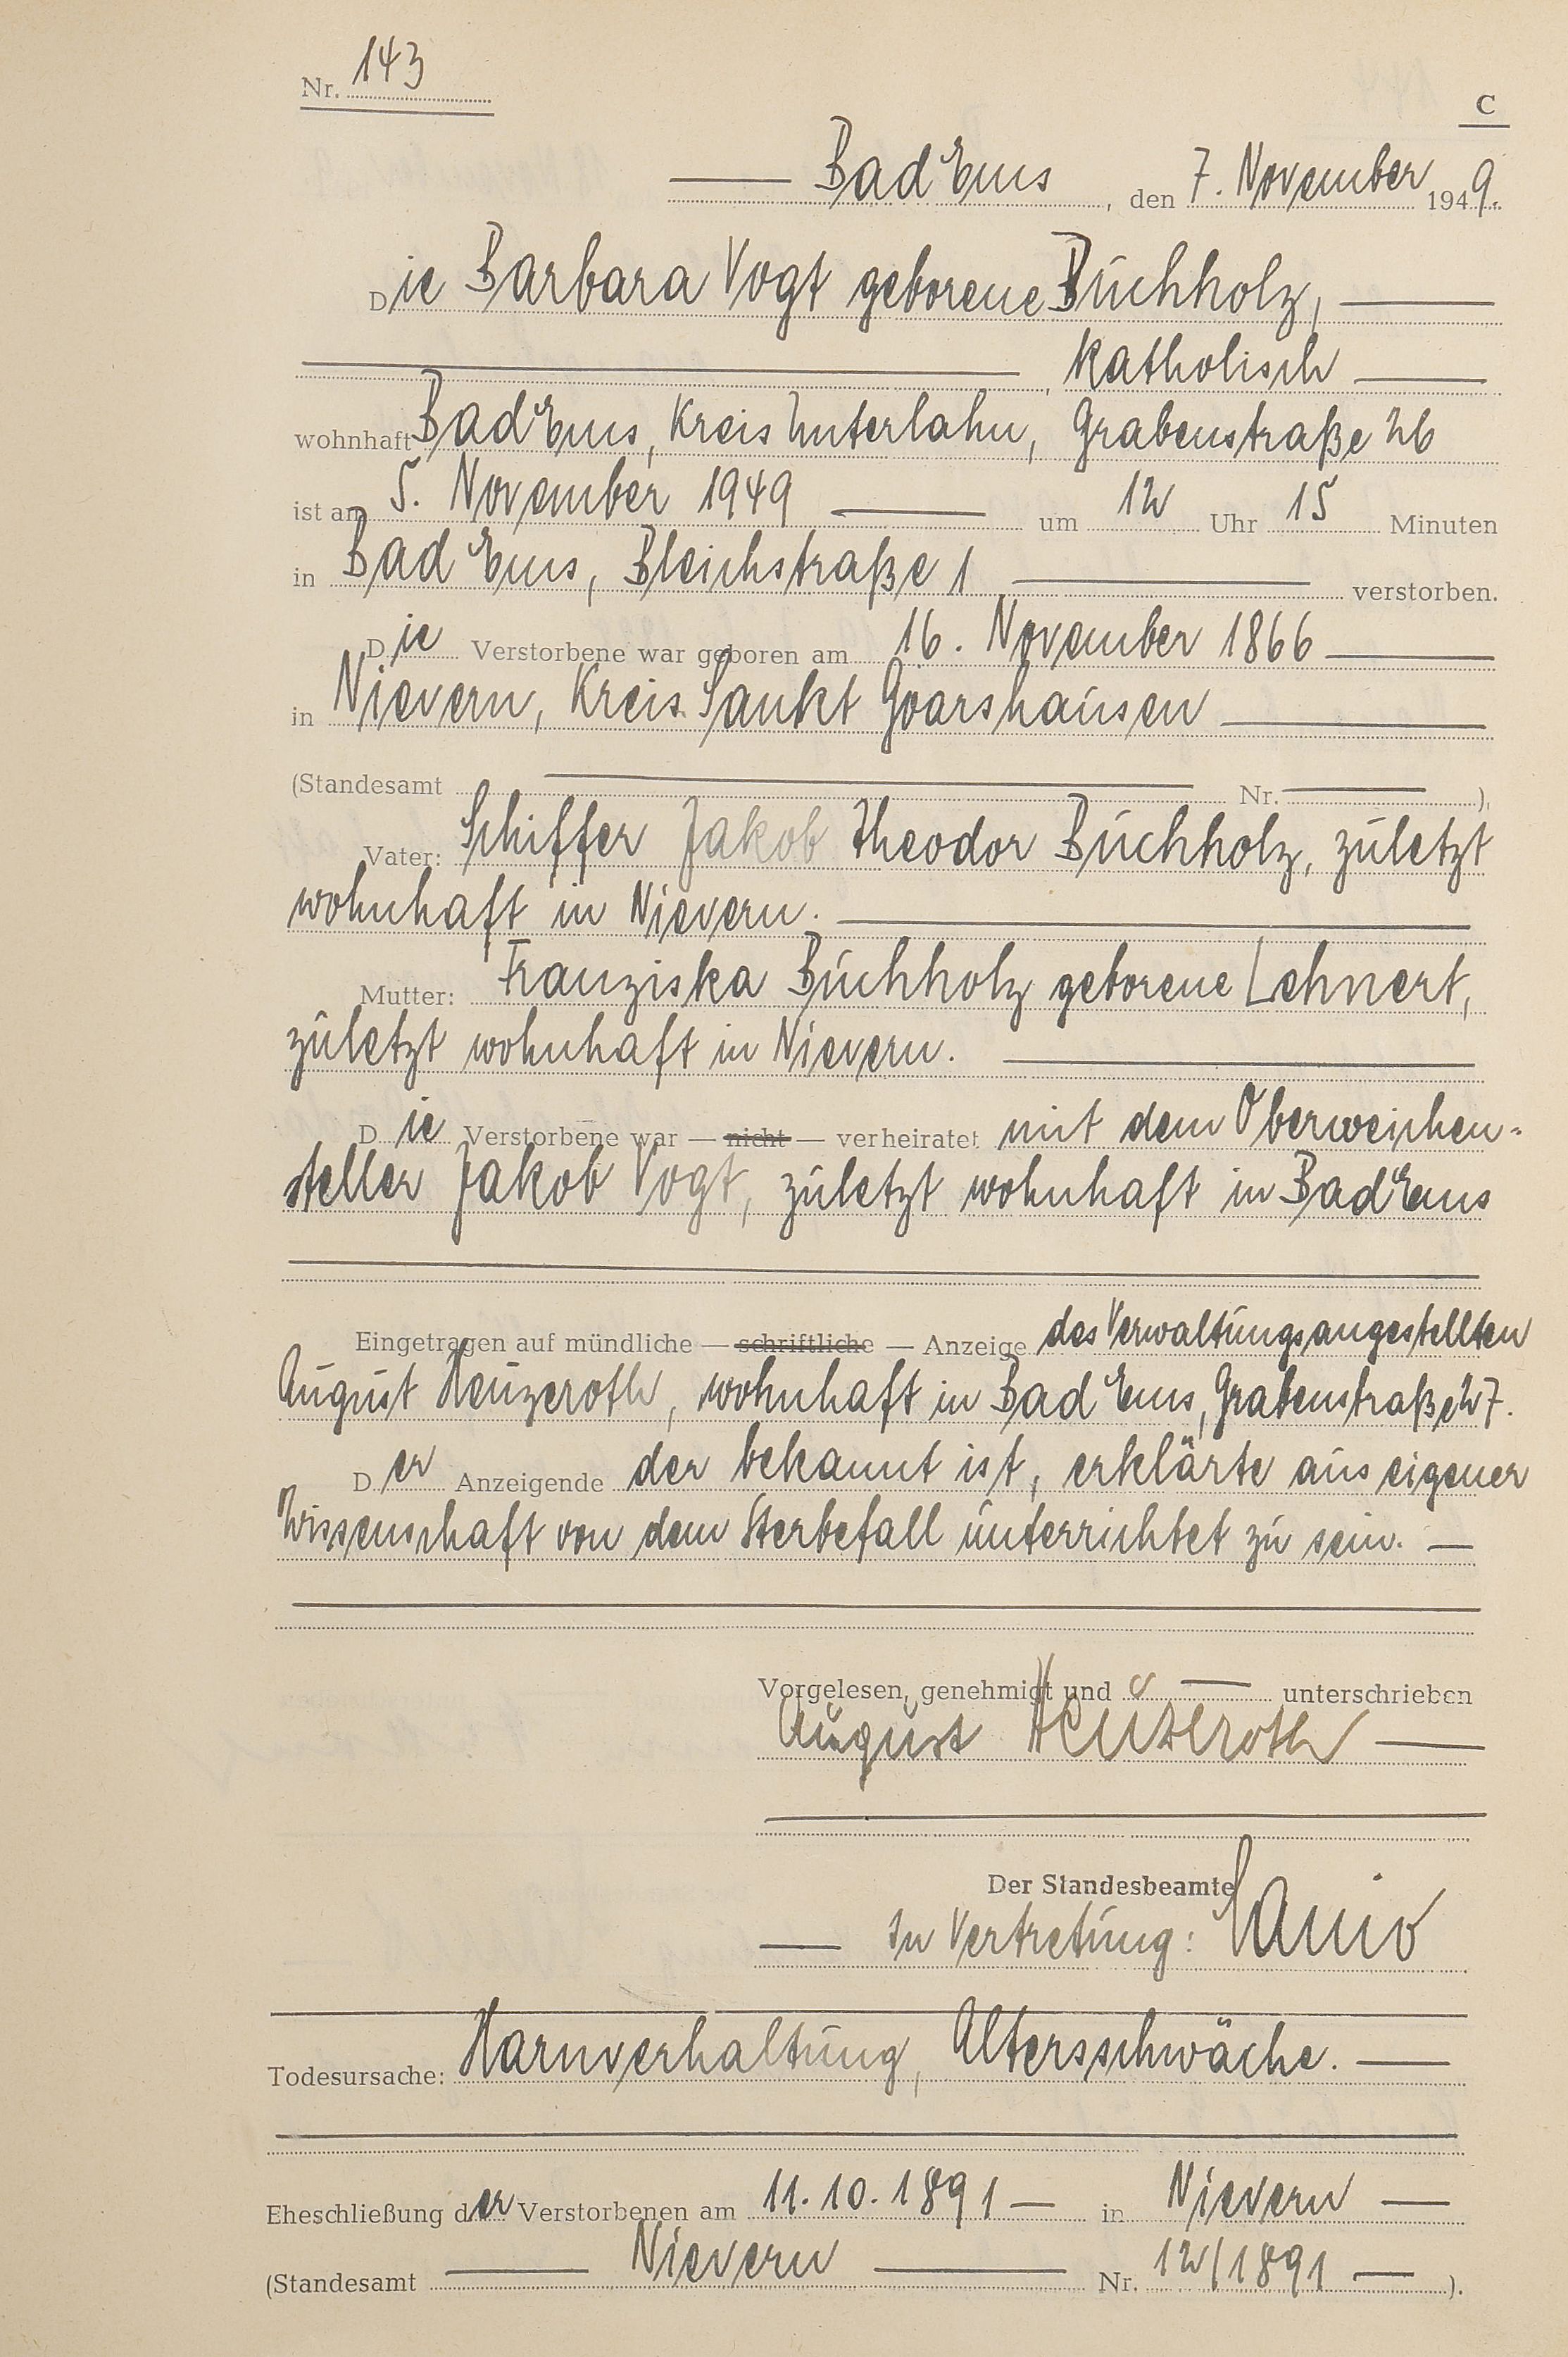 Nr. 143
C
Bad Ems, den 7. November 1949.
Die Barbara Vogt geborene Buchholz,
, katholisch
wohnhaft Bad Ems, Kreis Unterlahn, Grabenstraße 26
ist am 5. November 1949 um 12 Uhr 15 Minuten
in Bad Ems, Bleichstraße 1 verstorben.
Die Verstorbene war geboren am 16. November 1866
in Nievern, Kreis Sankt Goarshausen
(Standesamt Nr. ).
Vater: Schiffer Jakob Theodor Buchholz, zuletzt
wohnhaft in Nievern.
Mutter: Franziska Buchholz geborene Lehnert,
zuletzt wohnhaft in Nievern.
Die Verstorbene war — nicht — verheiratet mit dem Oberweichen-
steller Jakob Vogt, zuletzt wohnhaft in Bad Ems
Eingetragen auf mündliche — schriftliche — Anzeige des Verwaltungsangestellten
August Heuzeroth, wohnhaft in Bad Ems, Grabenstraße 27.
Der Anzeigende der bekannt ist, erklärte aus eigener
Wissenschaft von dem Sterbefall unterrichtet zu sein. —
Vorgelesen, genehmigt und unterschrieben
August Heuzeroth
Der Standesbeamte
In Vertretung:
Todesursache: Harnverhaltung, Altersschwäche.
Eheschließung der Verstorbenen am 11.10.1891 — in Nievern —
(Standesamt Nievern Nr. 12/1891 — ).